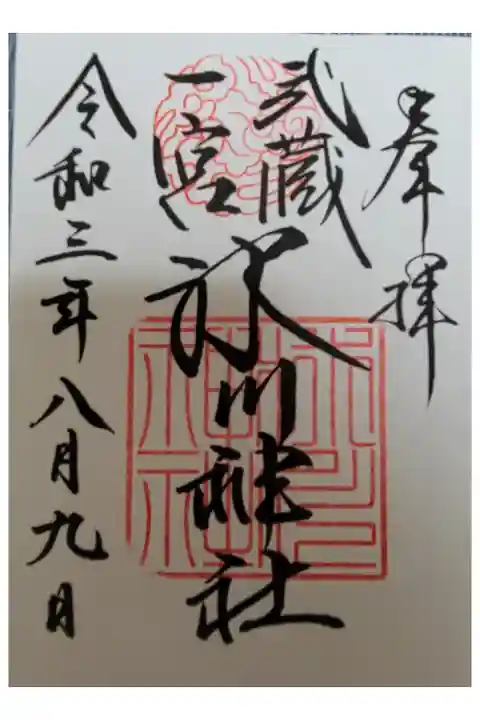 奉拝
武蔵
一宮
氷川神社
令和三年八月九日
氷川
神社